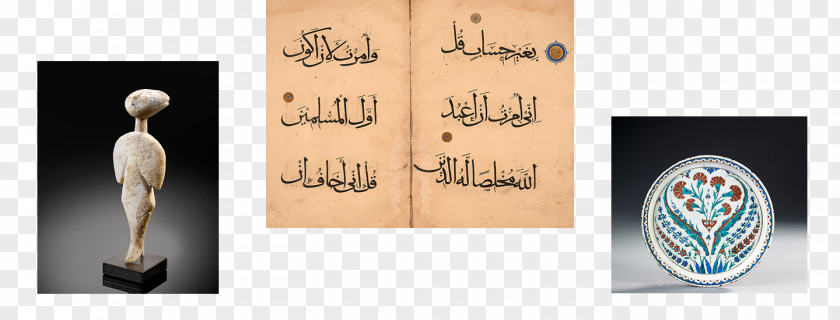 بِغَيْرِ حِسَابٍ قُلْ
اِنِّى أُمِرْتُ أَنْ أَعْبُدَ
اللَّهَ مُخْلِصًا لَهُ الدِّينَ
وَأُمِرْتُ لِأَنْ أَكُونَ
أَوَّلَ الْمُسْلِمِينَ
قُلْ اِنِّى أَخَافُ اِنْ